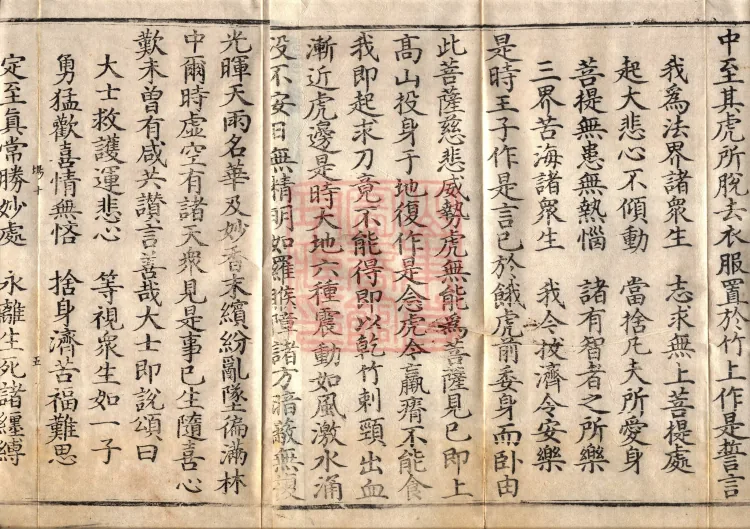 中至其虎所脫去衣服置於竹上作是誓言
我爲法界諸衆生　志求無上菩提處
起大悲心不傾動　當捨凡夫所愛身
菩提無患無熱惱　諸有智者之所樂
三界苦海諸衆生　我今拔濟令安樂
是時王子作是言已於餓虎前委身而卧由
此菩薩慈悲威勢虎無能爲菩薩見已即上
髙山投身于地復作是念虎今羸瘠不能食
我即起求刀竟不能得即以乾竹刺頸出血
漸近虎邊是時大地六種震動如風激水涌
没不安日無精明如羅睺障諸方暗蔽無復
光暉天雨名華及妙香末繽紛亂墜徧滿林
中爾時虛空有諸天衆見是事已生隨喜心
歎未曾有咸共讃言善哉大士即說頌曰
大士救護運悲心　等視衆生如一子
勇猛歡喜情無悋　捨身濟苦福難思
場十　五
定至眞常勝妙處　永離生死諸纏縛